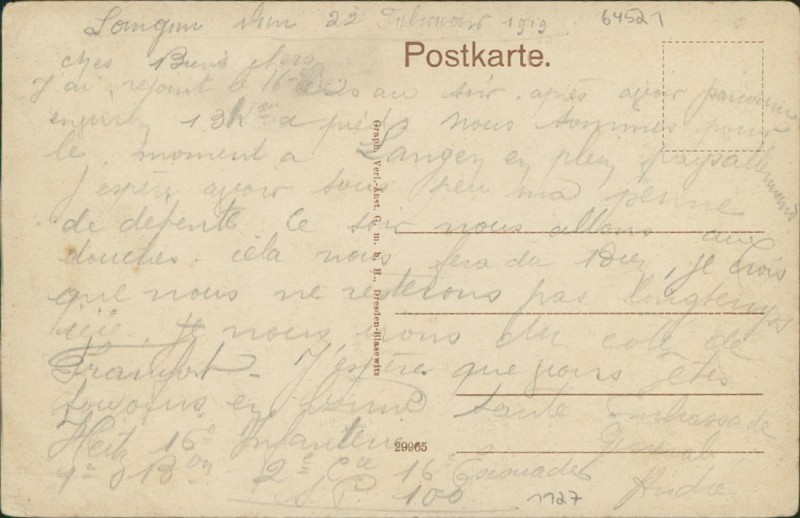 Langen den 22 Februar 1919 64521
Postkarte.
ches Bien chers
J'ai rejoint le 16 au soir après avoir parcouru
environ 13 à pied Nous sommes pour
le moment a Langen en plein pays allemand
J'espère avoir sous peu ma
de detente ce soir nous allons aux
douches cela nous fera du bien, je crois
que nous ne resterons pas longtemps
ici nous du coté de
Francfort - J'espère que vous êtes
toujours en bonne santé Embrassade
General
Heitz 16e Infanterie
2e Cie 16e Escouade
S P. 100 André
1127
Graph. Verl.-Anst. G. m. b. H., Dresden-Blasewitz
29965